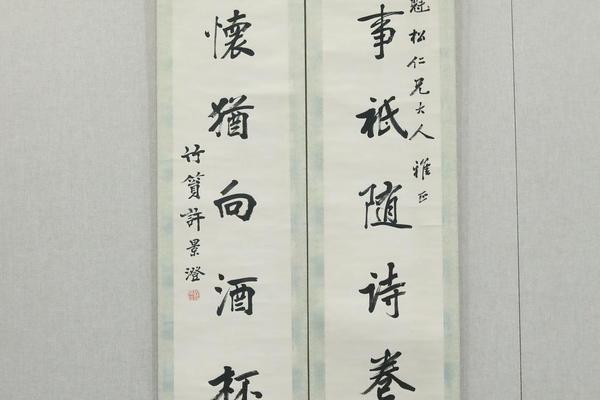 松仁兄大人 雅正
事祇随诗卷
懷猶向酒杯
竹篔許景澄